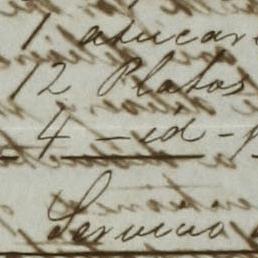 1 azucare
12 Platos
4 - id - p
Servicio